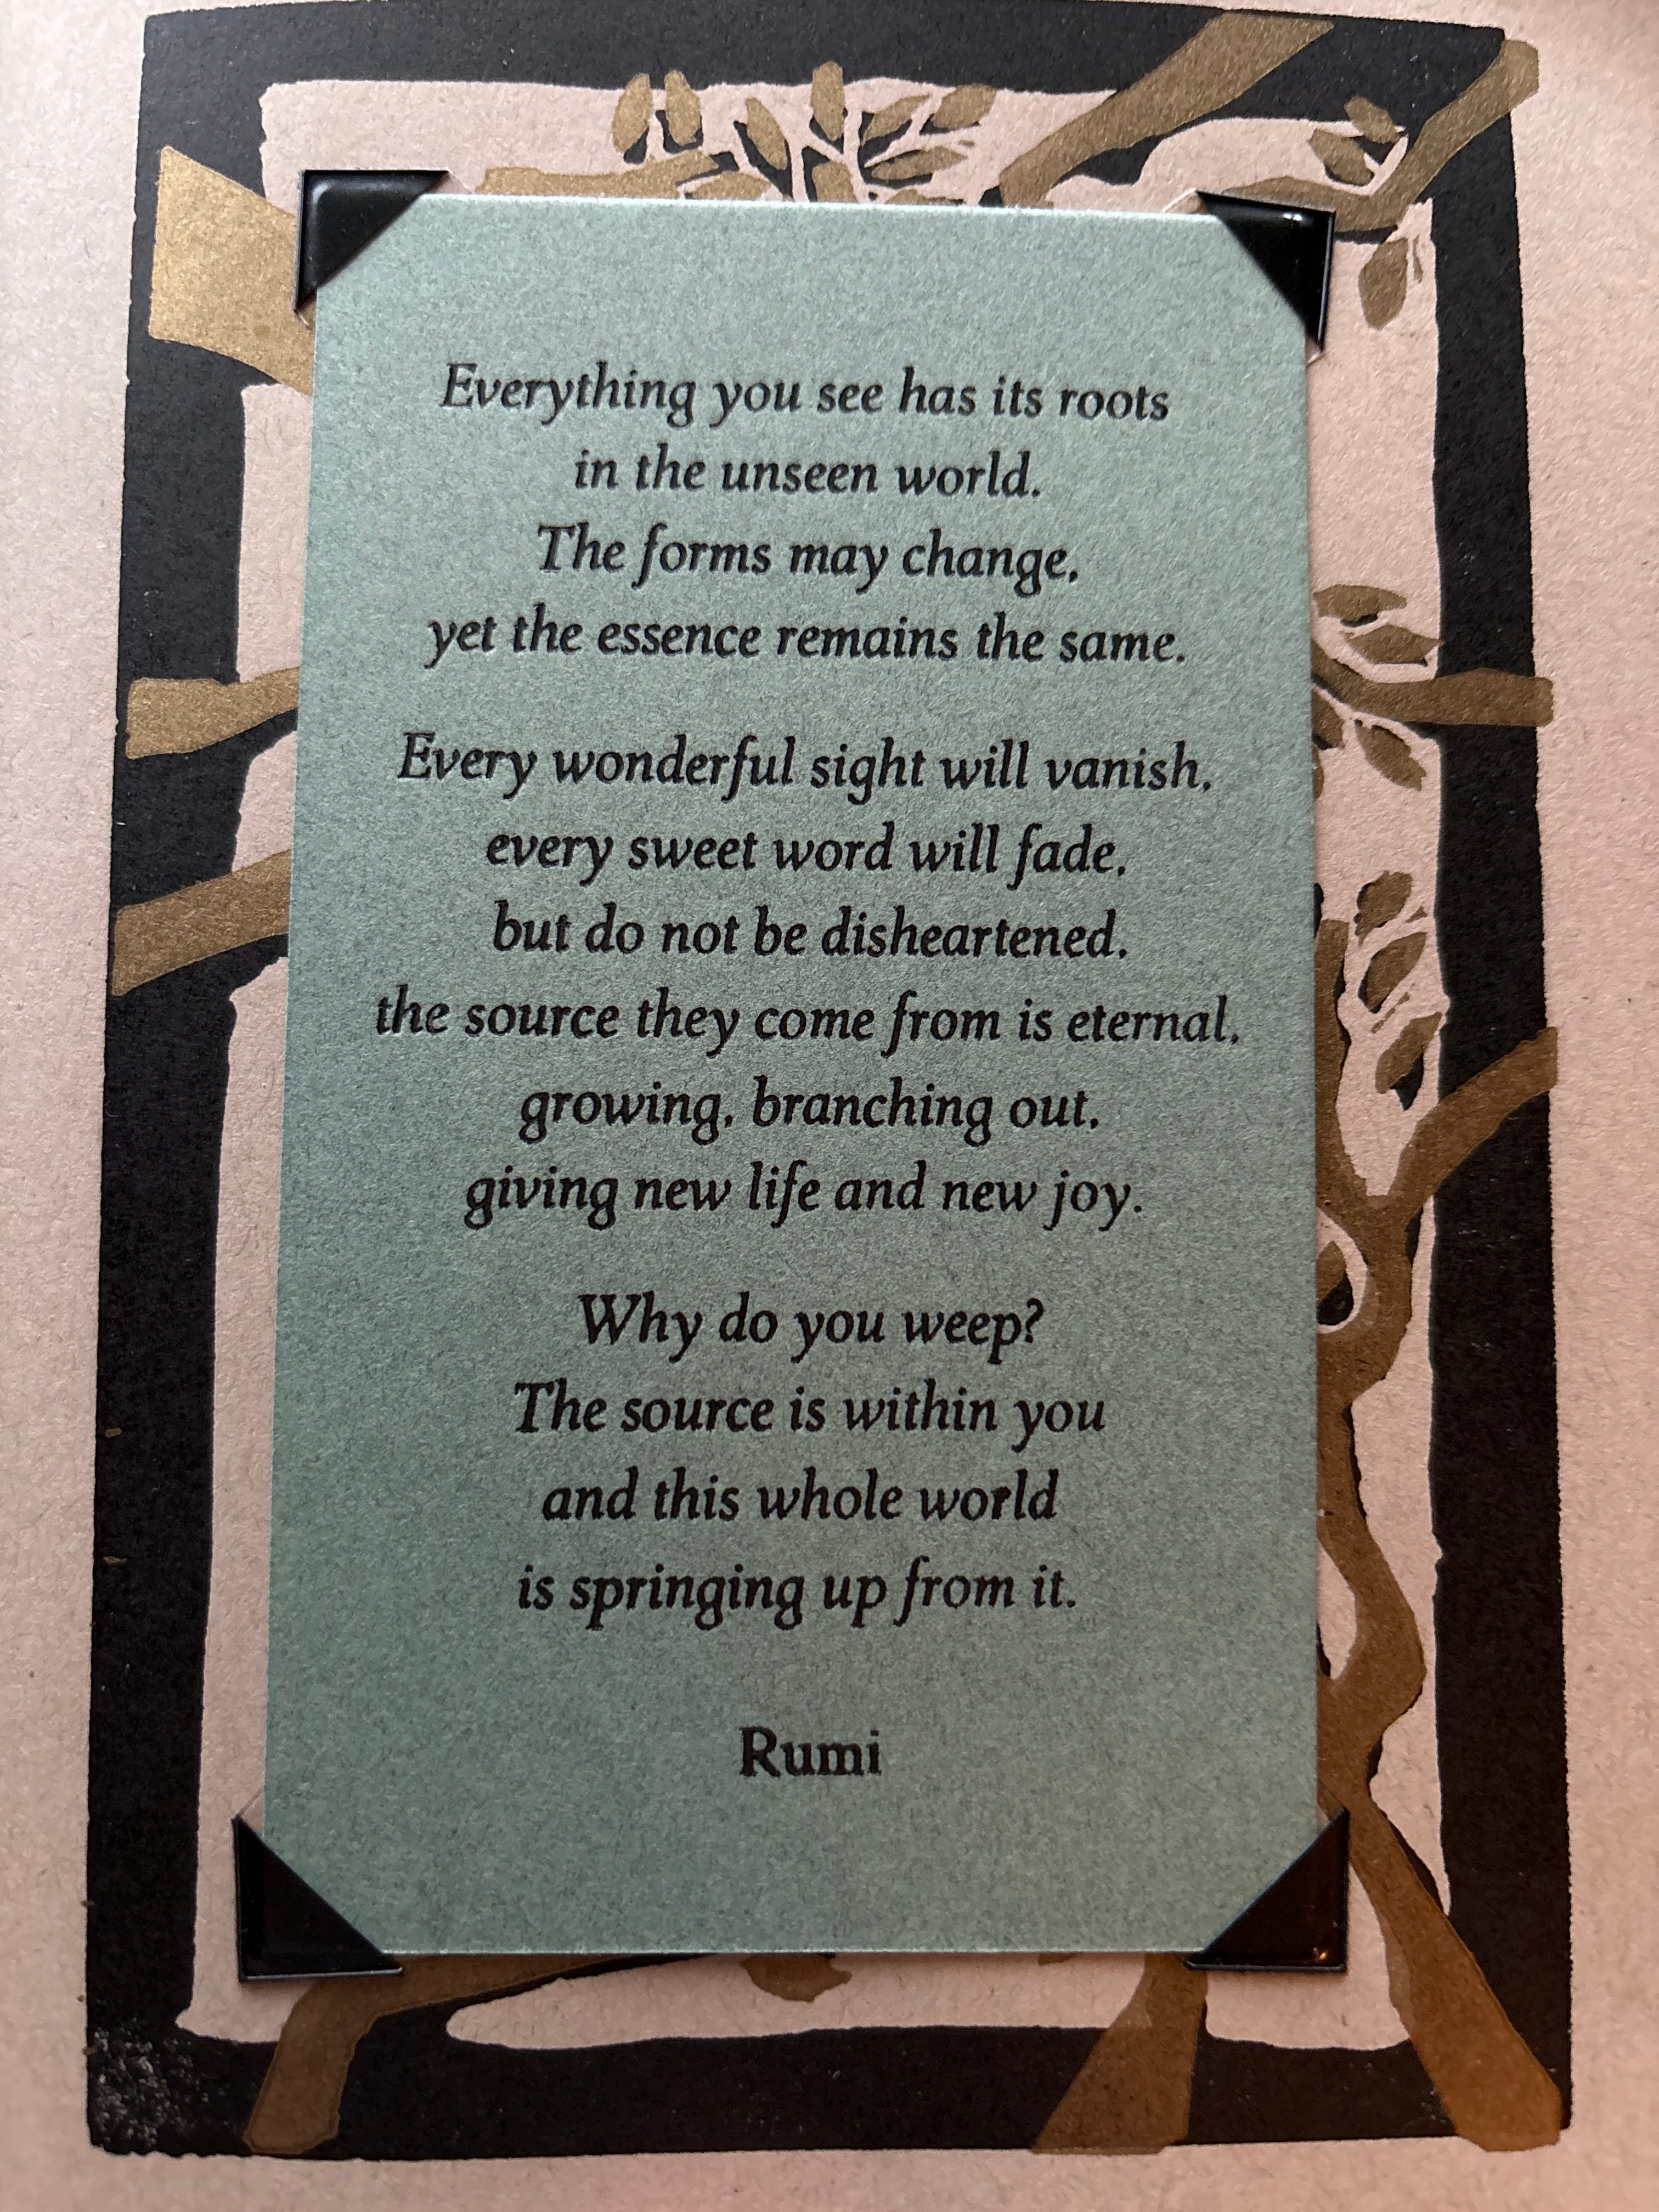 Everything you see has its roots
in the unseen world.
The forms may change,
yet the essence remains the same.
Every wonderful sight will vanish,
every sweet word will fade,
but do not be disheartened,
the source they come from is eternal,
growing, branching out,
giving new life and new joy.
Why do you weep?
The source is within you
and this whole world
is springing up from it.
Rumi